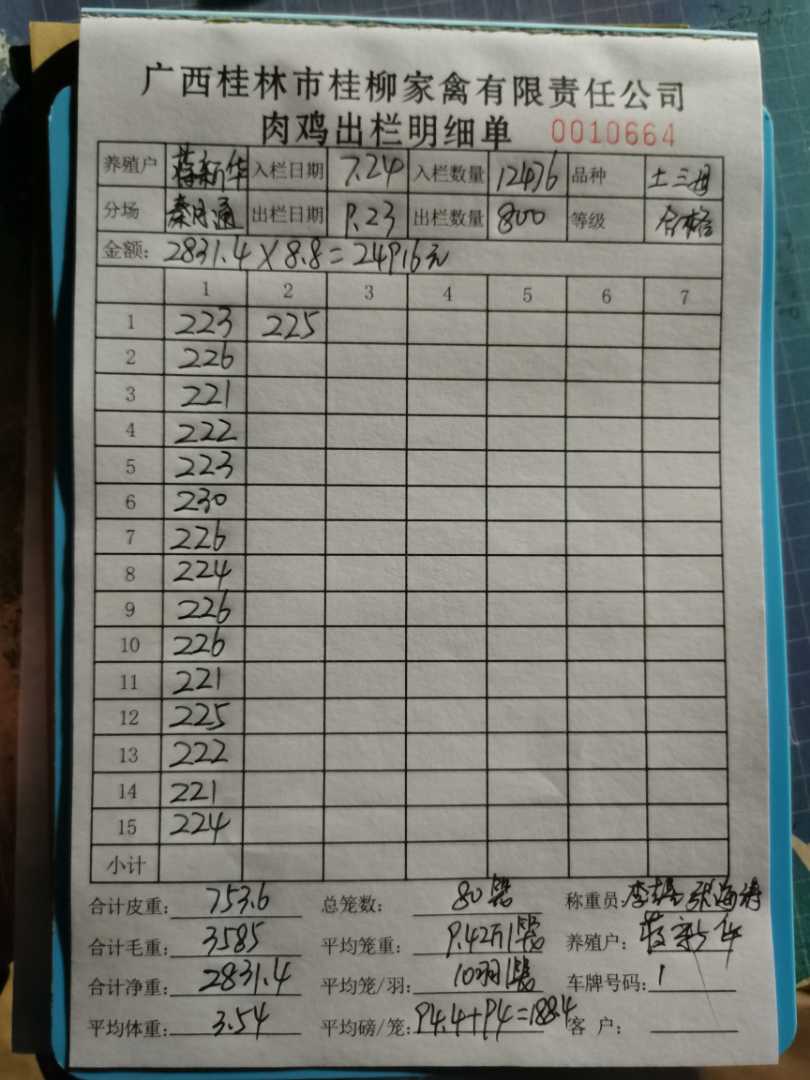 广西桂林市桂柳家禽有限责任公司
肉鸡出栏明细单 0010664
养殖户 蒋新华 入栏日期 7.24 入栏数量 12476 品种 土三
分场 秦月通 出栏日期 9.23 出栏数量 800 等级 合格
金额: 2831.4×8.8=24916元
1 2 3 4 5 6 7
1 223 225
2 226
3 221
4 222
5 223
6 230
7 226
8 224
9 226
10 226
11 221
12 225
13 222
14 221
15 224
小计
合计皮重: 753.6 总笼数: 80 称重员: 张海涛
合计毛重: 3585 平均笼重: 9.42 养殖户: 蒋新华
合计净重: 2831.4 平均笼/羽: 10羽 车牌号码: 1
平均体重: 3.54 平均磅/笼: 94.4+94=188.4 客户: